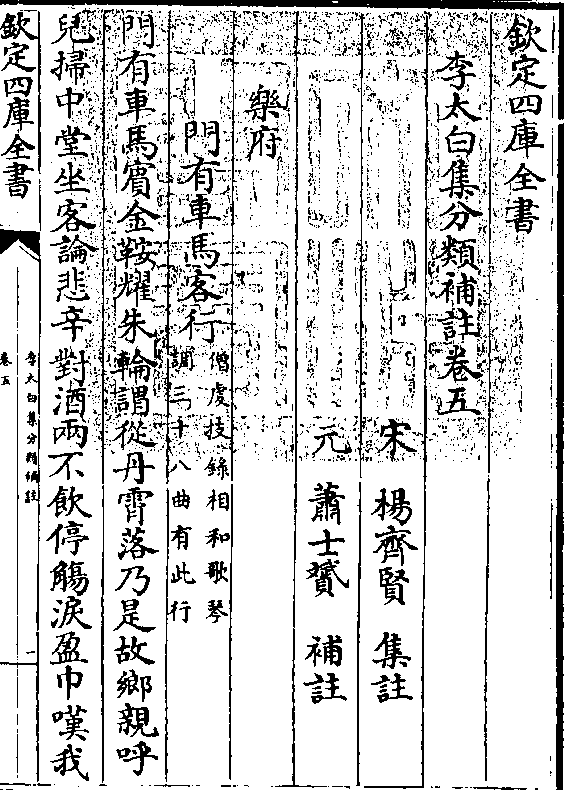 欽定四庫全書
李太白集分類補註卷五
宋 楊齊賢 集註
元 蕭士贇 補註
樂府
門有車馬客行 僧虔技錄相和歌琴
調三十八曲有此行
門有車馬賔金鞍耀朱輪謂從丹霄落乃是故鄉親呼
兒掃中堂坐客論悲辛對酒兩不飲停觴淚盈巾嘆我
欽定四庫全書
李太白集分類補註
卷五
一